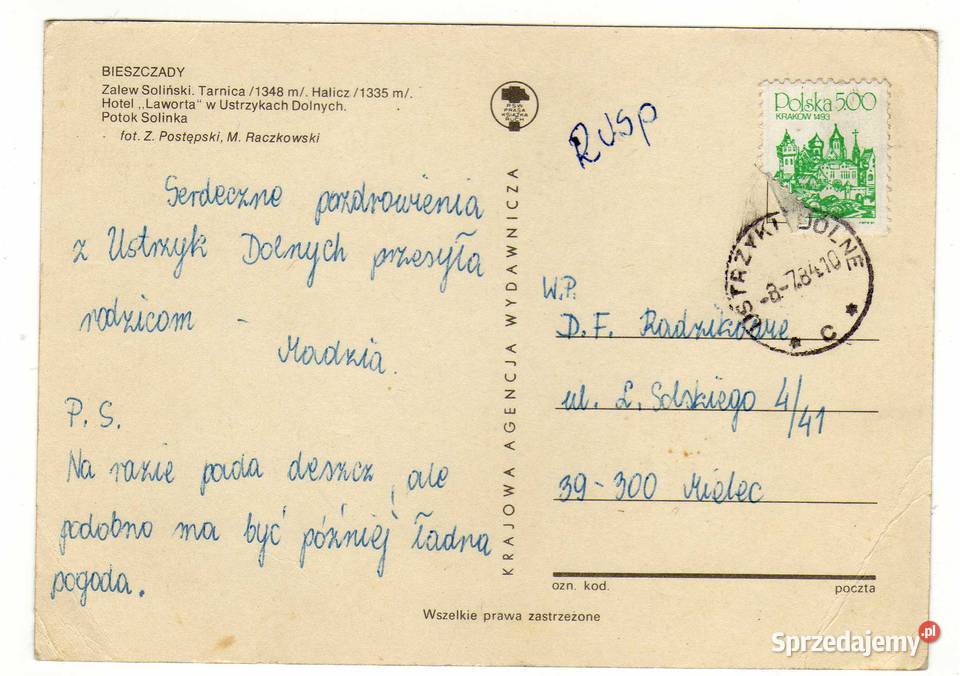 BIESZCZADY
Zalew Soliński. Tarnica /1348 m/. Halicz /1335 m/.
Hotel „Laworta" w Ustrzykach Dolnych.
Potok Solinka
fot. Z. Postępski, M. Raczkowski
PSW
PRASA
KSIĄŻKA
RUCH
RUSP
Polska 500
KRAKÓW 1493
USTRZYKI DOLNE
-8-7.84.10
* C *
Serdeczne pozdrowienia
z Ustrzyk Dolnych przesyła
rodzicom -
Madzia.
P. S.
Na razie pada deszcz, ale
podobno ma być później ładna
pogoda.
KRAJOWA AGENCJA WYDAWNICZA
W.P.
D. F. Radzikowie
ul. L. Solskiego 4/41
39-300 Mielec
ozn. kod. poczta
Wszelkie prawa zastrzeżone
Sprzedajemy.pl